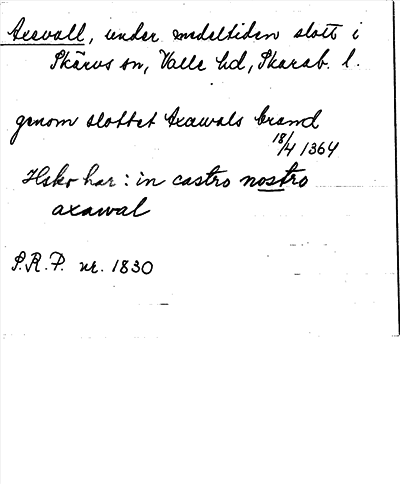 Axevall, under medeltiden slott i
Skärvs sn, Valle hd, Skarab. l.
genom slottet Axawals brand
18/4 1364
Hskr har: in castro nostro
axawal
S.R.P. nr. 1830